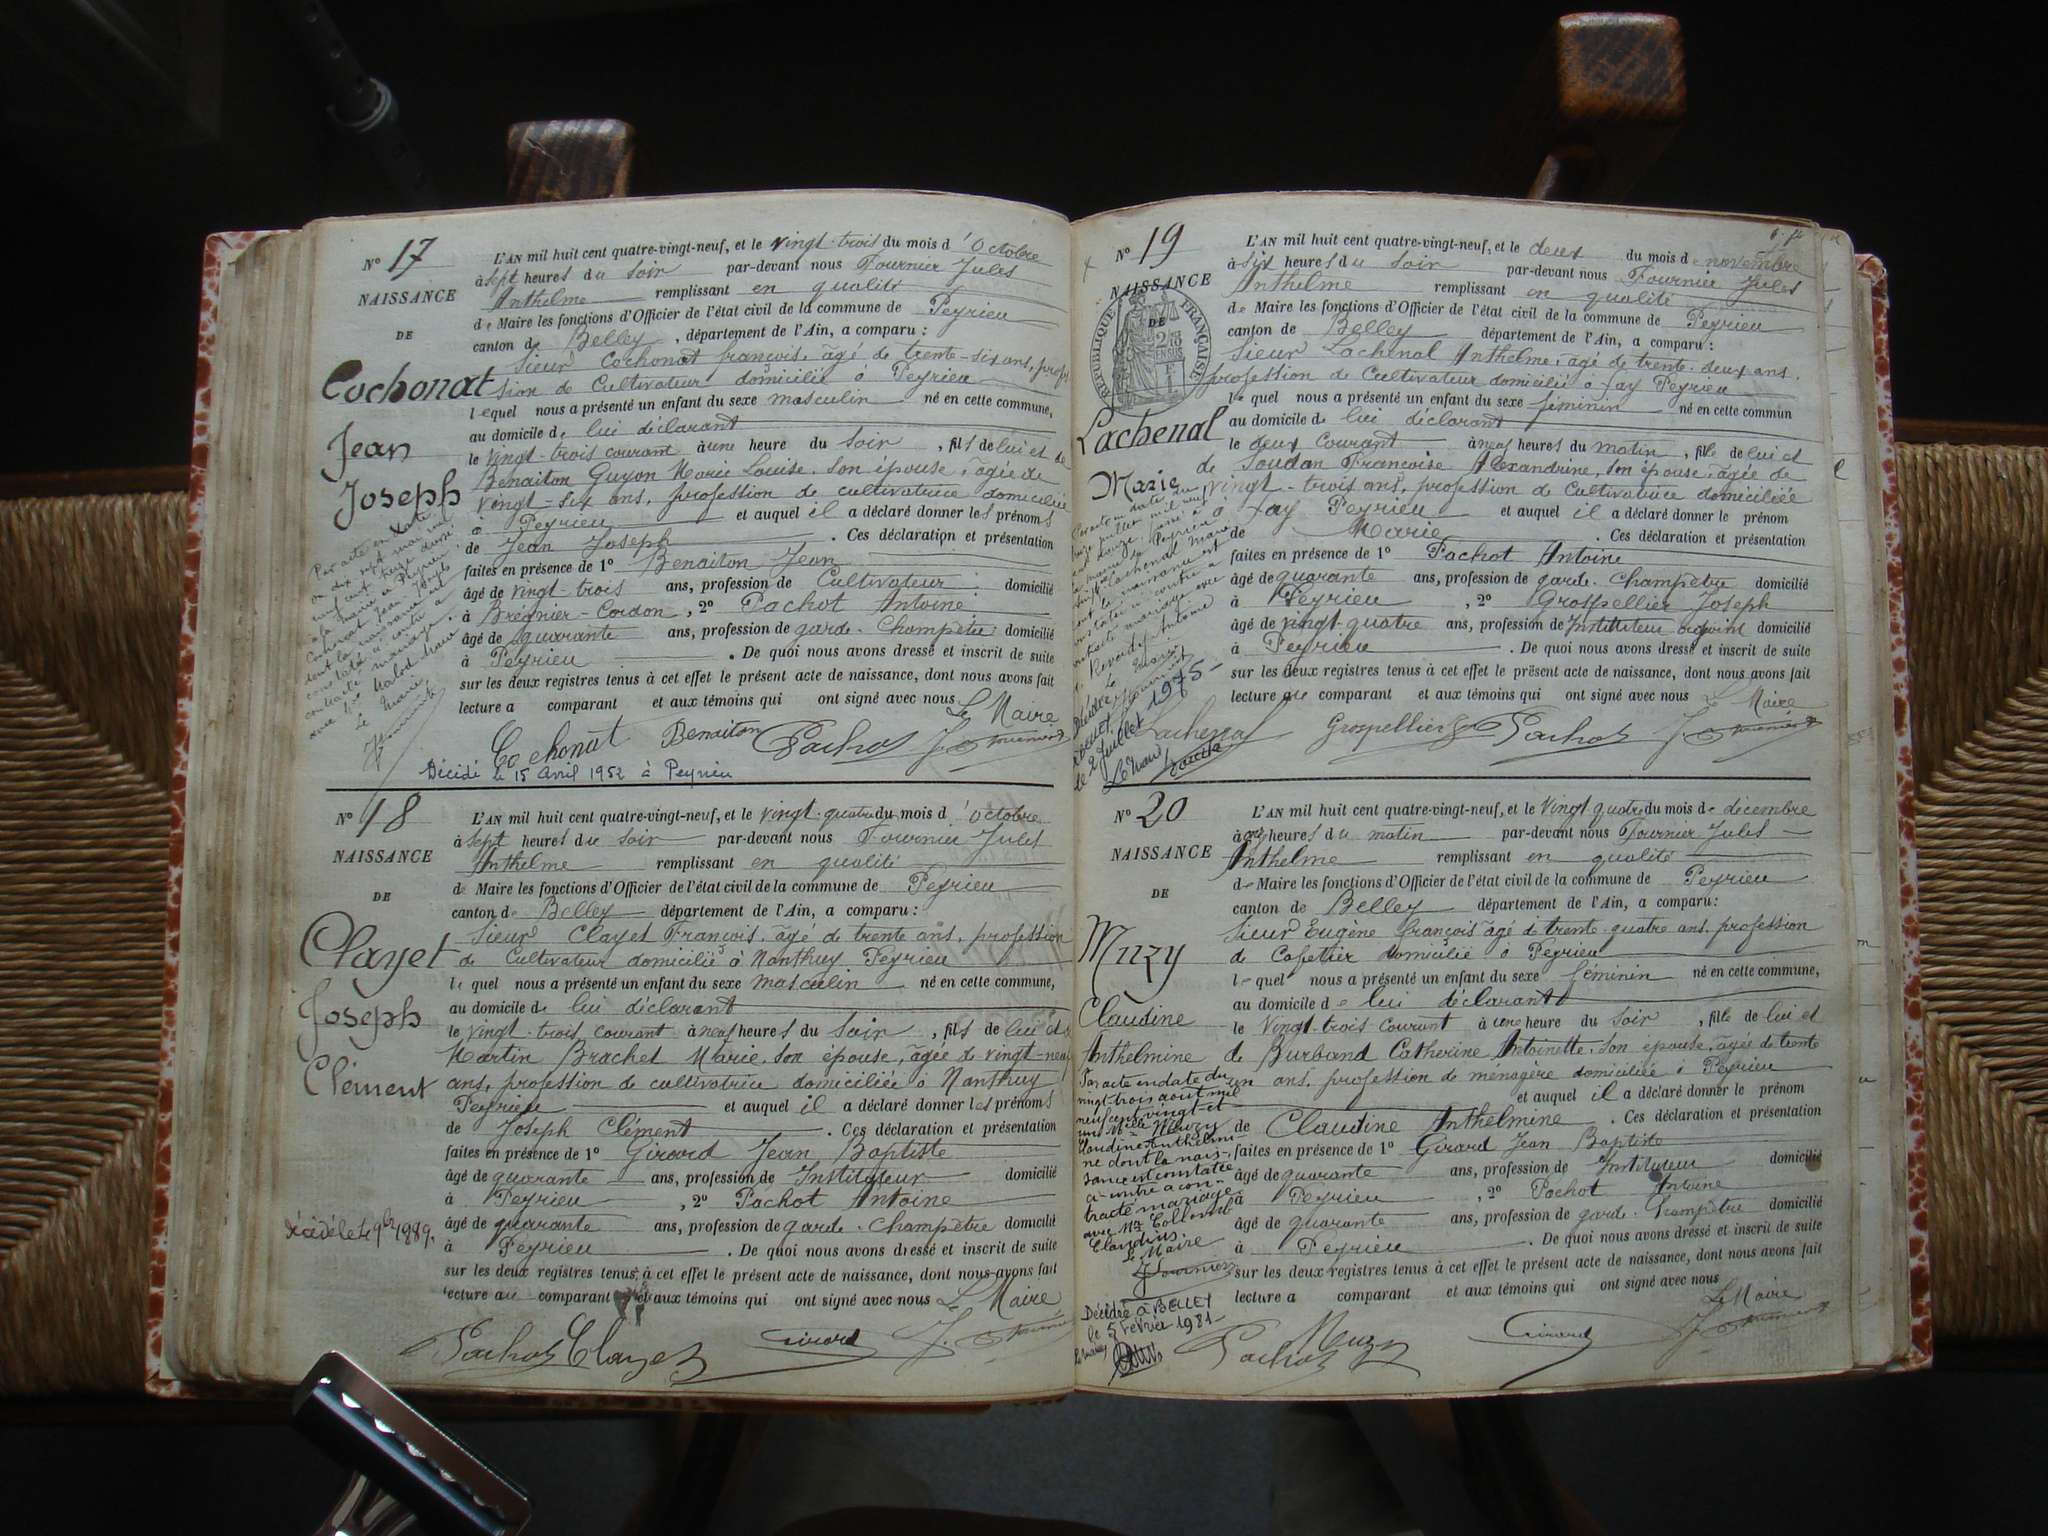 N° 17
NAISSANCE
DE
Cochonat
Jean
Joseph
L'AN mil huit cent quatre-vingt-neuf, et le vingt-trois du mois d'Octobre
à sept heures du soir par-devant nous Fournier Jules
Anthelme remplissant en qualité
de Maire les fonctions d'Officier de l'état civil de la commune de Peyrieu
canton de Belley, département de l'Ain, a comparu :
Sieur Cochonat françois, âgé de trente-six ans, profes
sion de Cultivateur domicilié à Peyrieu
lequel nous a présenté un enfant du sexe masculin né en cette commune,
au domicile de lui déclarant
le vingt-trois courant à une heure du soir, fils de lui et de
Benaiton Guyon Marie Louise, son épouse, âgée de
vingt-six ans, profession de cultivatrice domiciliée
à Peyrieu et auquel il a déclaré donner les prénoms
de Jean Joseph. Ces déclaration et présentation
faites en présence de 1° Benaiton Jean
âgé de vingt-trois ans, profession de Cultivateur domicilié
à Brégnier-Cordon, 2° Pachot Antoine
âgé de quarante ans, profession de garde-Champêtre domicilié
à Peyrieu. De quoi nous avons dressé et inscrit de suite
sur les deux registres tenus à cet effet le présent acte de naissance, dont nous avons fait
lecture a comparant et aux témoins qui ont signé avec nous Le Maire
Cochonat Benaiton Pachot J. Fournier
Par acte en date
du dix sept mai mil
neuf cent treize dressé
à la mairie de Peyrieu
Cochonat Jean Joseph
dont la naissance est
constatée ci contre a
contracté mariage
avec
Le Maire
Décédé le 15 Avril 1952 à Peyrieu
N° 18
NAISSANCE
DE
Clayet
Joseph
Clément
L'AN mil huit cent quatre-vingt-neuf, et le vingt-quatre du mois d'Octobre
à sept heures du soir par-devant nous Fournier Jules
Anthelme remplissant en qualité
de Maire les fonctions d'Officier de l'état civil de la commune de Peyrieu
canton de Belley département de l'Ain, a comparu :
Sieur Clayet François, âgé de trente ans, profession
de Cultivateur domicilié à Nanthuy Peyrieu
lequel nous a présenté un enfant du sexe masculin né en cette commune,
au domicile de lui déclarant
le vingt-trois courant à neuf heures du soir, fils de lui et d
Martin Brachet Marie, son épouse, âgée de vingt-neuf
ans, profession de cultivatrice domiciliée à Nanthuy
Peyrieu et auquel il a déclaré donner les prénoms
de Joseph Clément. Ces déclaration et présentation
faites en présence de 1° Girard Jean Baptiste
âgé de quarante ans, profession de Instituteur domicilié
à Peyrieu, 2° Pachot Antoine
âgé de quarante ans, profession de garde-Champêtre domicilié
à Peyrieu. De quoi nous avons dressé et inscrit de suite
sur les deux registres tenus à cet effet le présent acte de naissance, dont nous avons fait
lecture au comparant et aux témoins qui ont signé avec nous Le Maire
Pachot Clayet Girard J. Fournier
N° 19
NAISSANCE
DE
RÉPUBLIQUE FRANÇAISE
Lachenal
Marie
L'AN mil huit cent quatre-vingt-neuf, et le deux du mois de novembre
à six heures du soir par-devant nous Fournier Jules
Anthelme remplissant en qualité
de Maire les fonctions d'Officier de l'état civil de la commune de Peyrieu
canton de Belley département de l'Ain, a comparu :
Sieur Lachenal Anthelme, âgé de trente-deux ans,
profession de Cultivateur domicilié à fay Peyrieu
lequel nous a présenté un enfant du sexe féminin né en cette commun
au domicile de lui déclarant
le deux courant à neuf heures du matin, fille de lui et
de Soudan Françoise Alexandrine, son épouse, âgée de
vingt-trois ans, profession de Cultivatrice domiciliée
à fay Peyrieu et auquel il a déclaré donner le prénom
de Marie. Ces déclaration et présentation
faites en présence de 1° Pachot Antoine
âgé de quarante ans, profession de garde-Champêtre domicilié
à Peyrieu, 2° Grospellier Joseph
âgé de vingt-quatre ans, profession de Instituteur adjoint domicilié
à Peyrieu. De quoi nous avons dressé et inscrit de suite
sur les deux registres tenus à cet effet le présent acte de naissance, dont nous avons fait
lecture au comparant et aux témoins qui ont signé avec nous Le Maire
Lachenal Grospellier Pachot J. Fournier
le 2 Juillet 1975
N° 20
NAISSANCE
DE
Muzy
Claudine
Anthelmine
L'AN mil huit cent quatre-vingt-neuf, et le Vingt quatre du mois de décembre
à onze heures du matin par-devant nous Fournier Jules
Anthelme remplissant en qualité
de Maire les fonctions d'Officier de l'état civil de la commune de Peyrieu
canton de Belley département de l'Ain, a comparu :
Sieur Eugène françois âgé de trente-quatre ans, profession
de Cafetier domicilié à Peyrieu
lequel nous a présenté un enfant du sexe féminin né en cette commune,
au domicile de lui déclarant
le Vingt-trois Courant à une heure du soir, fille de lui et
de Burband Catherine Antoinette, son épouse, âgée de trente
un ans, profession de ménagère domiciliée à Peyrieu
et auquel il a déclaré donner le prénom
de Claudine Anthelmine. Ces déclaration et présentation
faites en présence de 1° Girard Jean Baptiste
âgé de quarante ans, profession de Instituteur domicilié
à Peyrieu, 2° Pachot Antoine
âgé de quarante ans, profession de garde-Champêtre domicilié
à Peyrieu. De quoi nous avons dressé et inscrit de suite
sur les deux registres tenus à cet effet le présent acte de naissance, dont nous avons fait
lecture a comparant et aux témoins qui ont signé avec nous
Le Maire
Pachot Muzy Girard J. Fournier
Par acte en date du
vingt-trois août mil
neuf cent vingt et
un Mlle Muzy
Claudine Anthelmi-
ne dont la nais-
sance est constatée
ci-contre a con-
tracté mariage
avec Mr Collomb
Claudius.
Le Maire
J. Fournier
Décédée à BELLEY
le 5 Février 1981